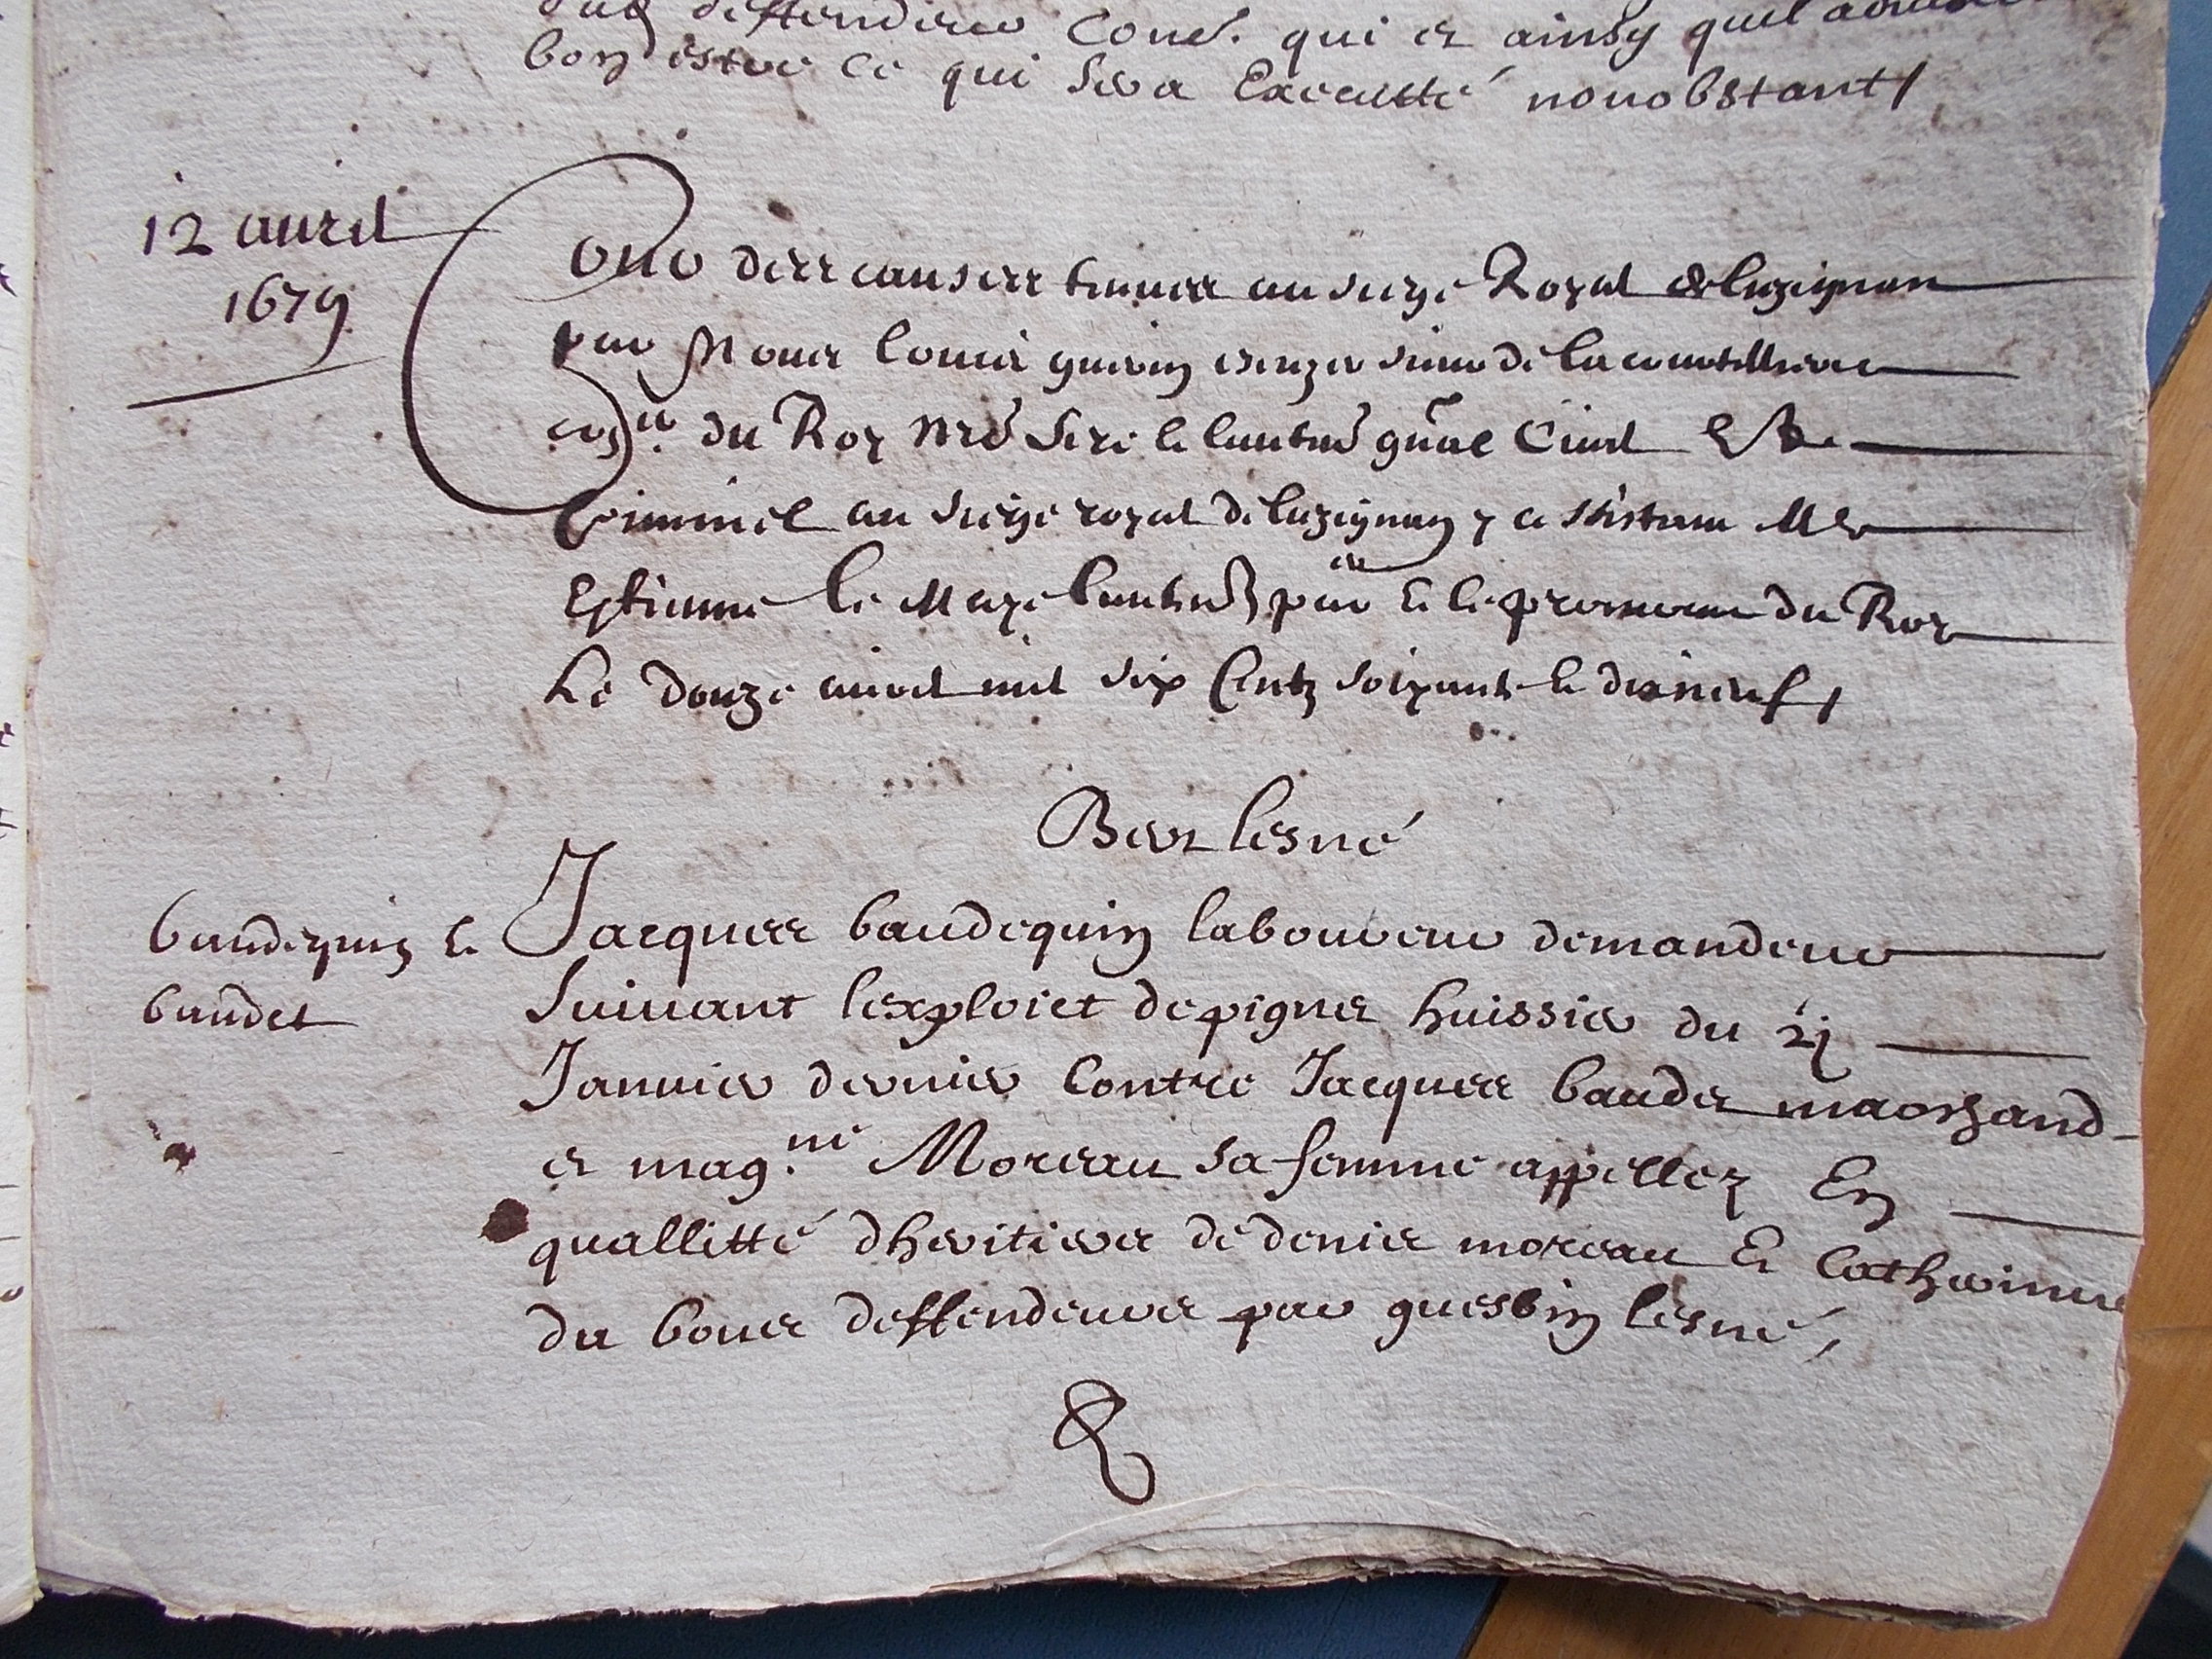 deffendeur cond. qui et ainsy quil
bon estre ce qui sera Executté nonobstant /
12 auril
1679
Cour des causes tenues au siege Royal de luzignan
par Nous louis guerin escuyer sieur de la courtilliere
cons.er du Roy nre sire le lieuten gnal Ciuil et
Criminel au siege royal de luzignan y assistans Me
Estienne le Maye lieuten par er et le procureur du Roy
Le douze auril mil six Centz soixante et dix neuf /
Ber lesné
baudequin et
baudet
Jacques baudequin laboureur demandeur
suiuant lexploict de pignet huissier du
Januier dernier Contre Jacques baudet marchand
et mag.ne Moreau sa femme appellez En
quallitté dheritiers de denis moreau Et Catherinne
du bois deffendeurs par guesbin lesné,